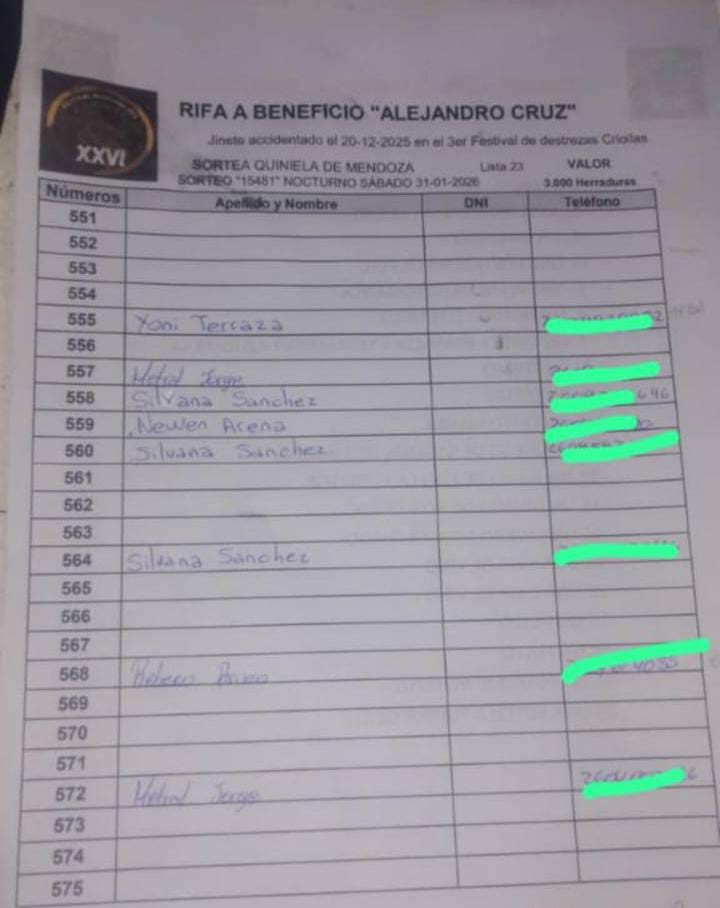 XXVI
RIFA A BENEFICIO "ALEJANDRO CRUZ"
Jinete accidentado el 20-12-2025 en el 3er Festival de destrezas Criollas
SORTEA QUINIELA DE MENDOZA Lista 23 VALOR
SORTEO "15481" NOCTURNO SÁBADO 31-01-2026 3.000 Herraduras
Números Apellido y Nombre DNI Teléfono
551
552
553
554
555 Yoni Terraza
556
557 Metral Jorge
558 Silvana Sanchez 646
559 Newen Arena
560 Silvana Sanchez
561
562
563
564 Silvana Sanchez
565
566
567
568 4035
569
570
571
572 Metral Jorge
573
574
575